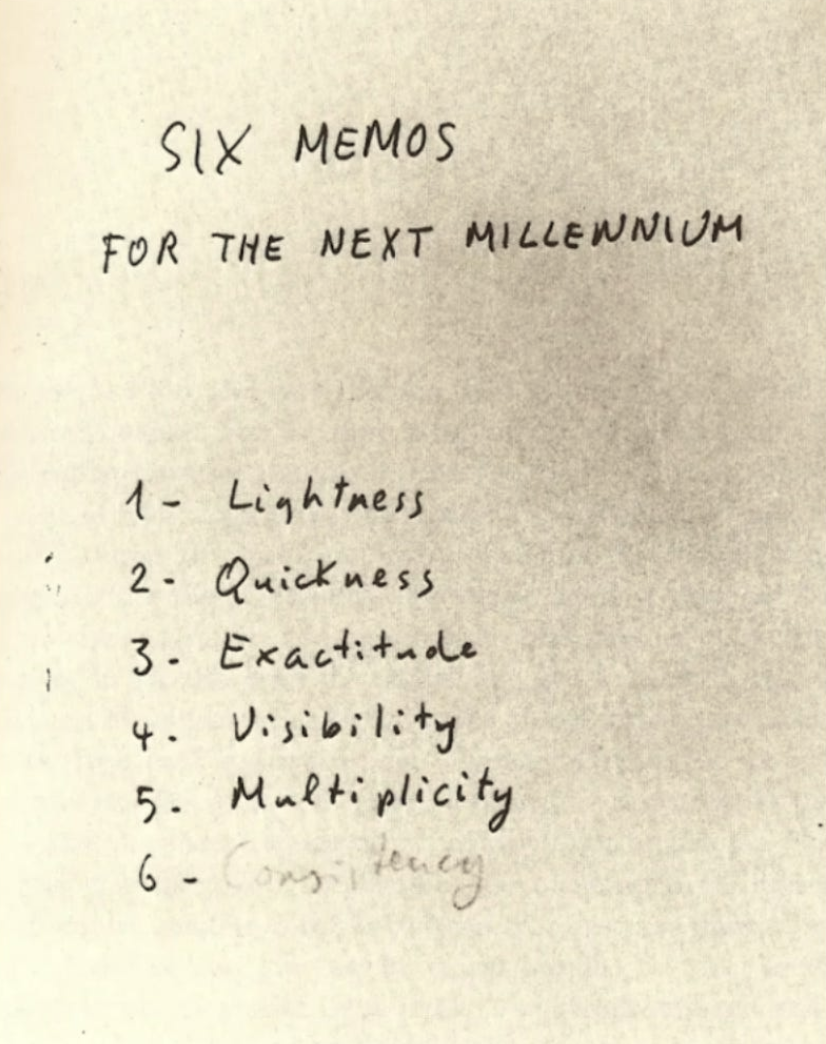 SIX MEMOS
FOR THE NEXT MILLENNIUM
1 - Lightness
2 - Quickness
3 - Exactitude
4 - Visibility
5 - Multiplicity
6 - Consistency